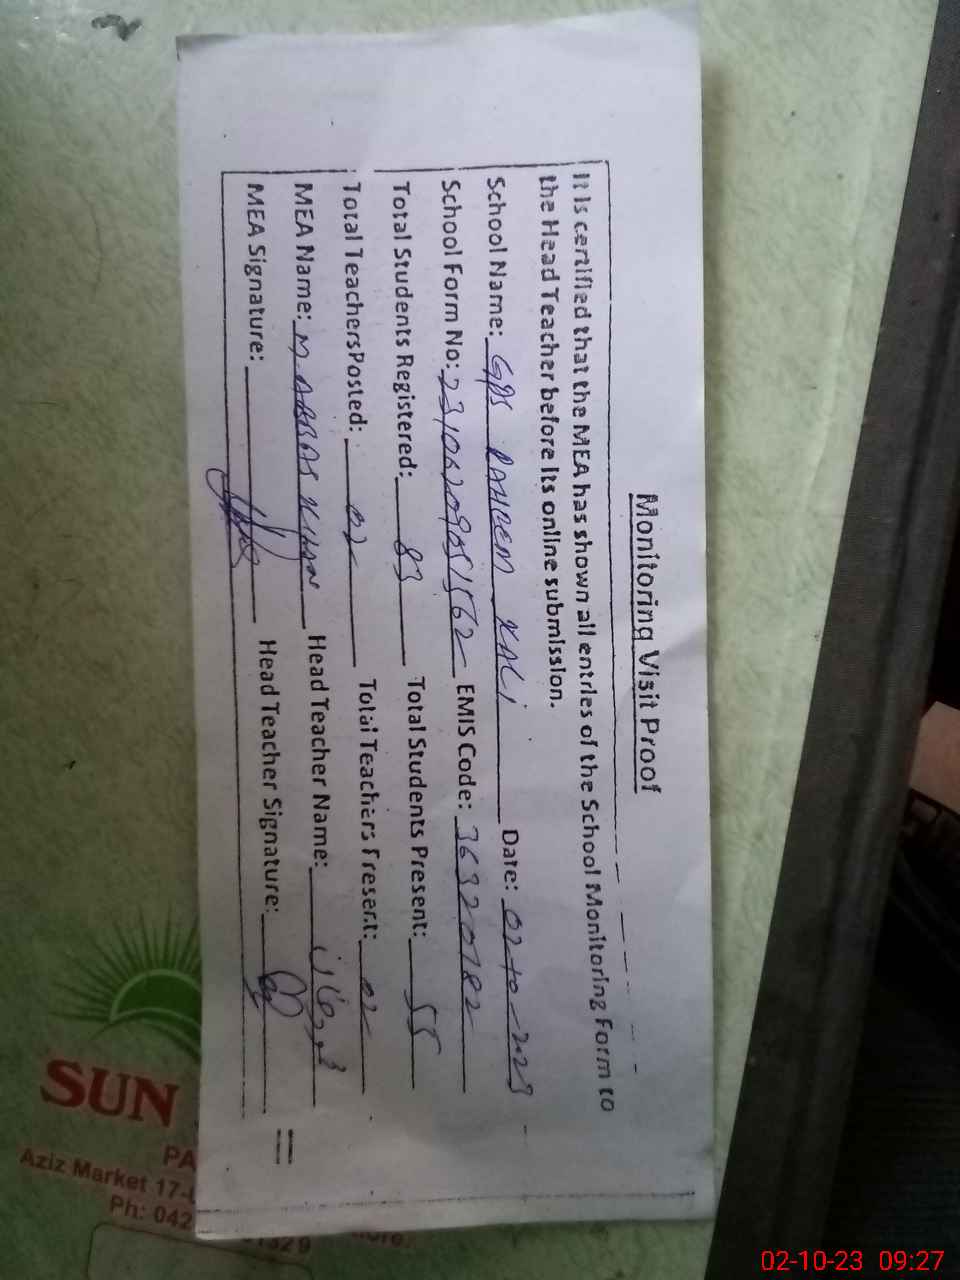 Monitoring Visit Proof
It is certified that the MEA has shown all entries of the School Monitoring Form to
the Head Teacher before its online submission.
School Name: GPS RAHEEM KALI Date: 02-10-2023
School Form No: EMIS Code: 36320782
Total Students Registered: 83 Total Students Present: 55
Total Teachers Posted: 02 Total Teachers Present: 02
MEA Name: M. ABBAS KHAN Head Teacher Name:
MEA Signature: Head Teacher Signature:
SUN
PA
Aziz Market 17-
Ph: 042
1329
ore.
02-10-23 09:27